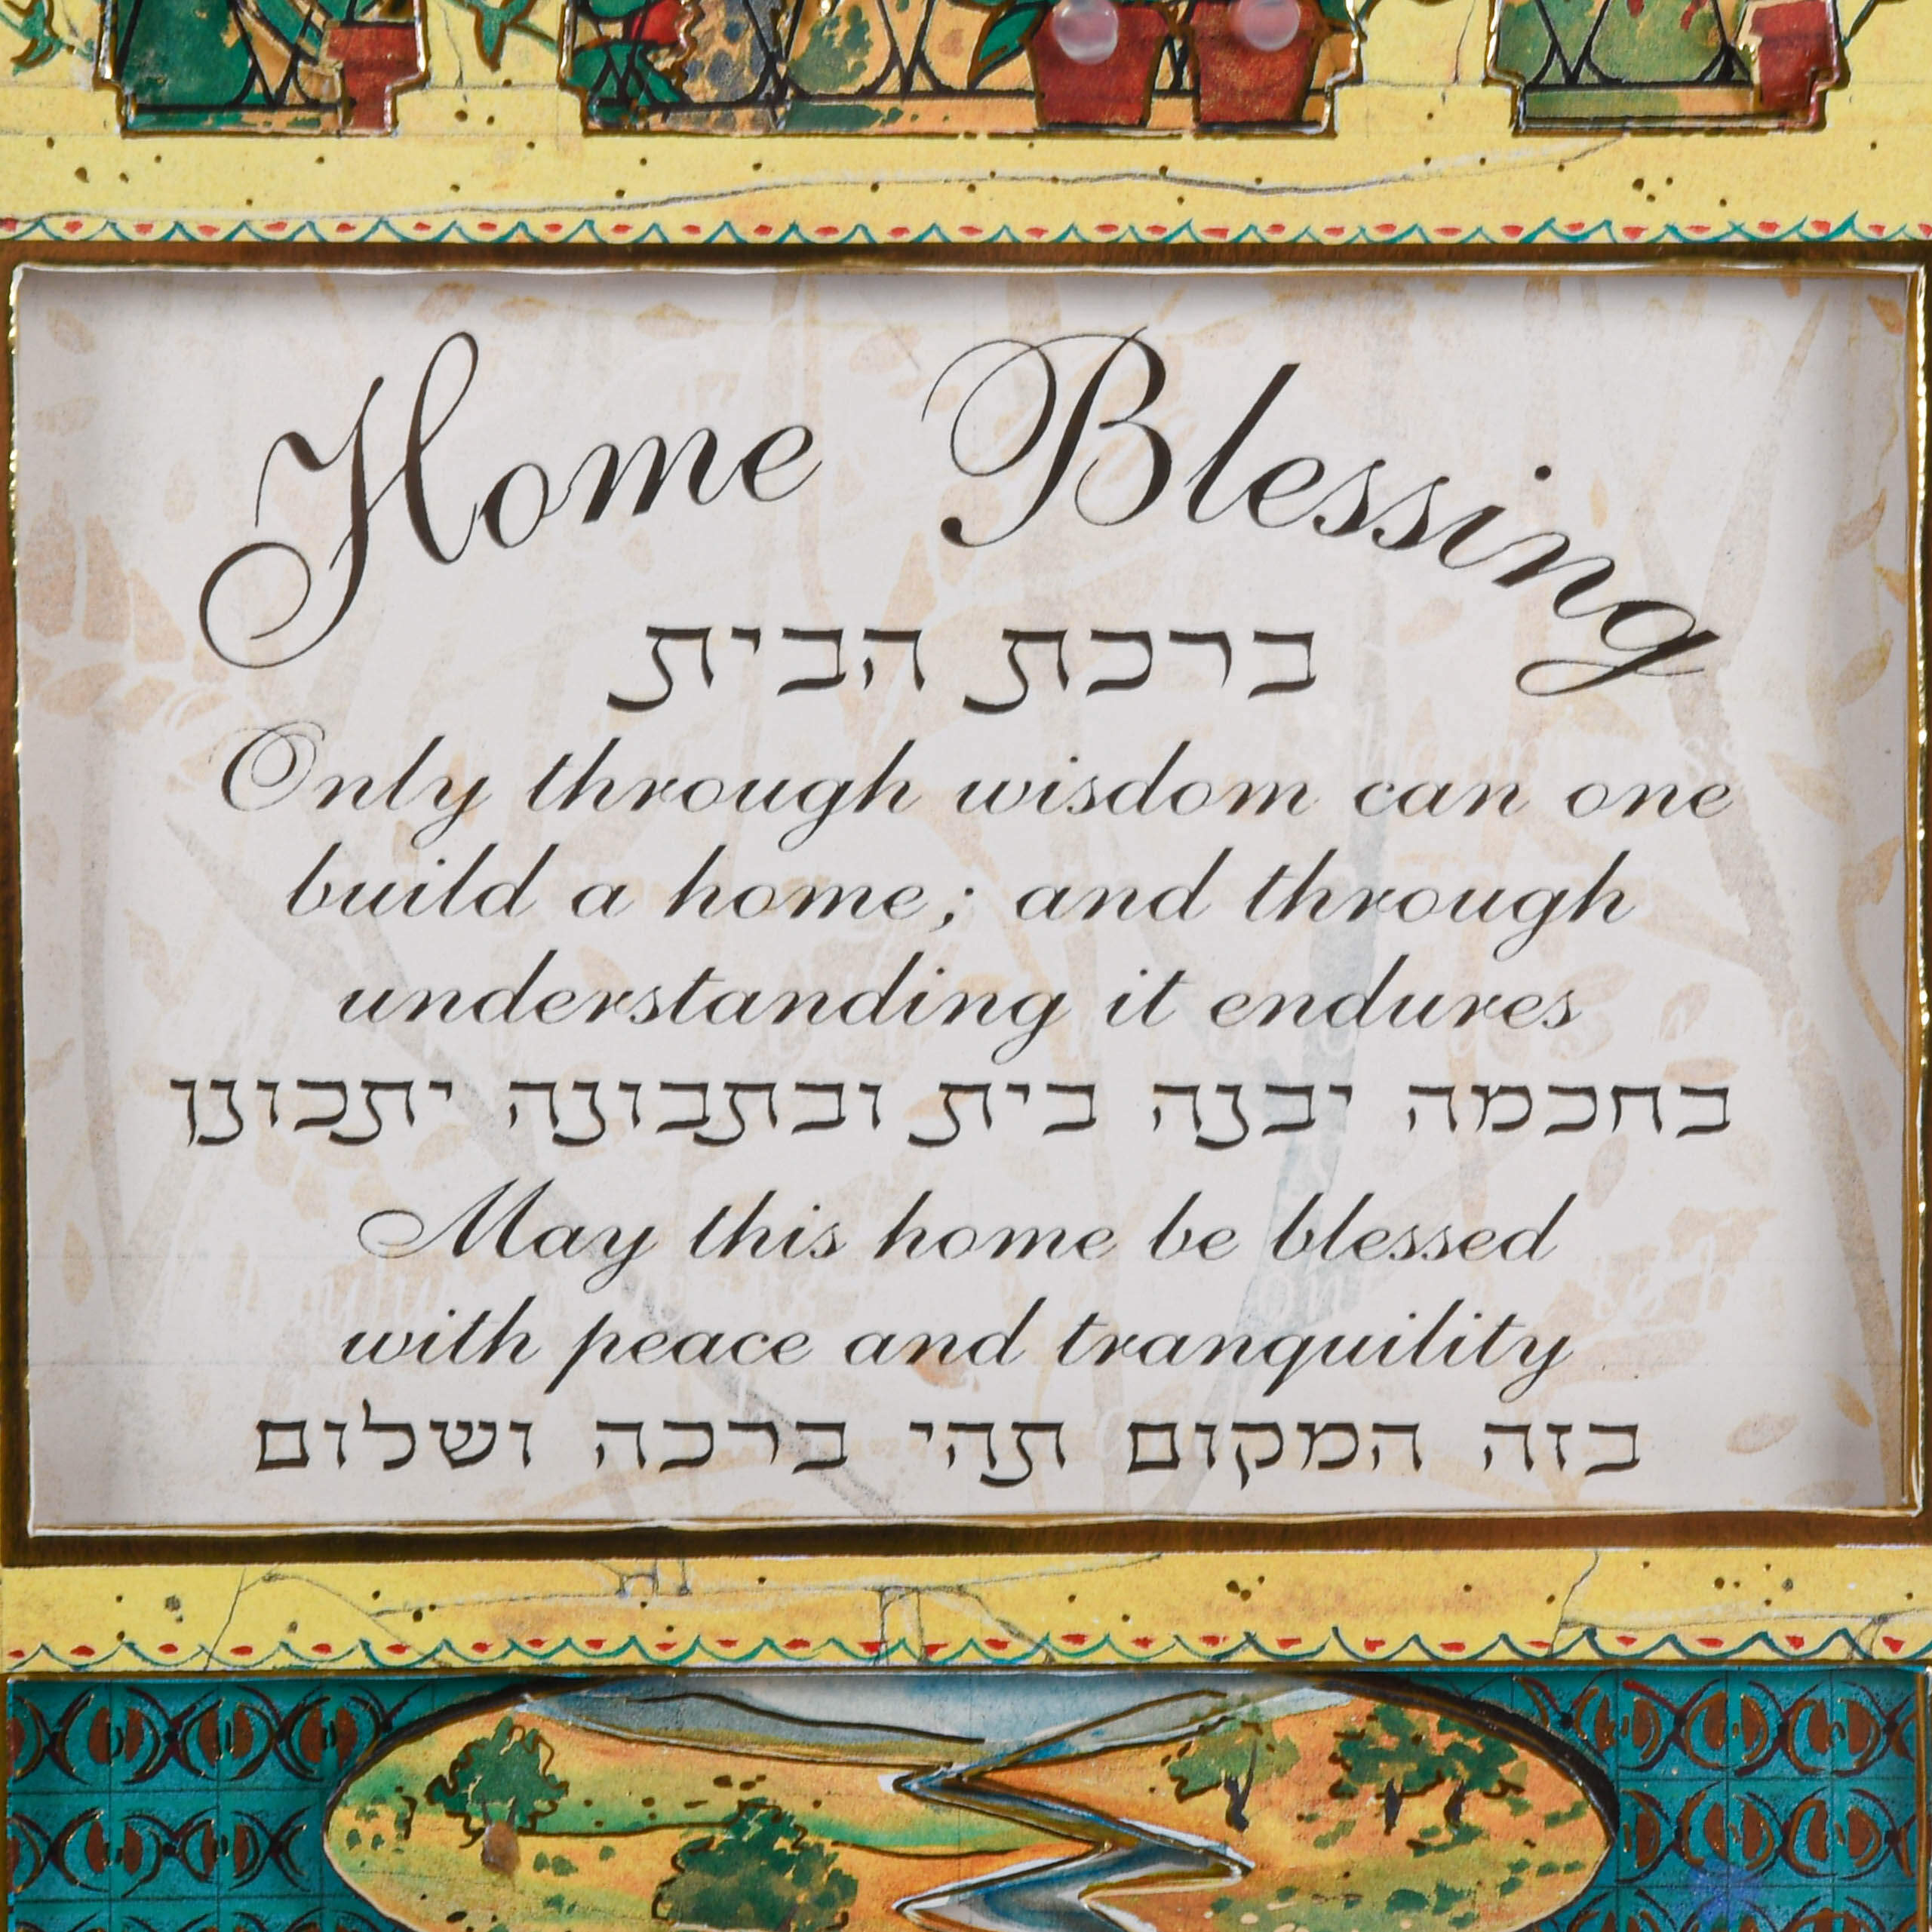 Home Blessing
ברכת הבית
Only through wisdom can one
build a home; and through
understanding it endures
בחכמה יבנה בית ובתבונה יתכונן
May this home be blessed
with peace and tranquility
בזה המקום תהי ברכה ושלום